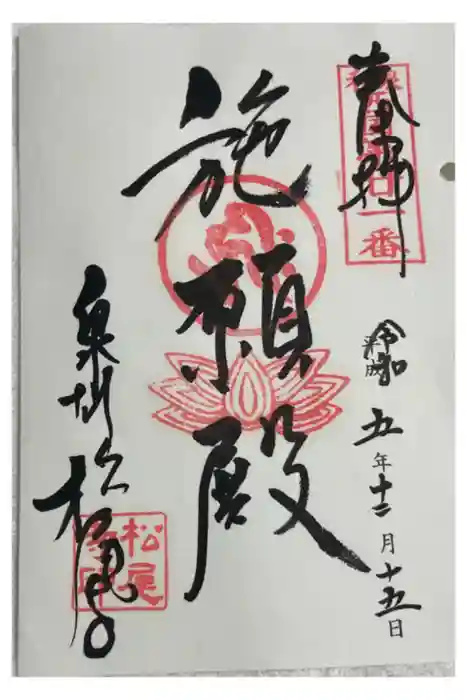 奉拝
一番
令和五年十二月十五日
平成
施願殿
泉州 松尾寺
松尾